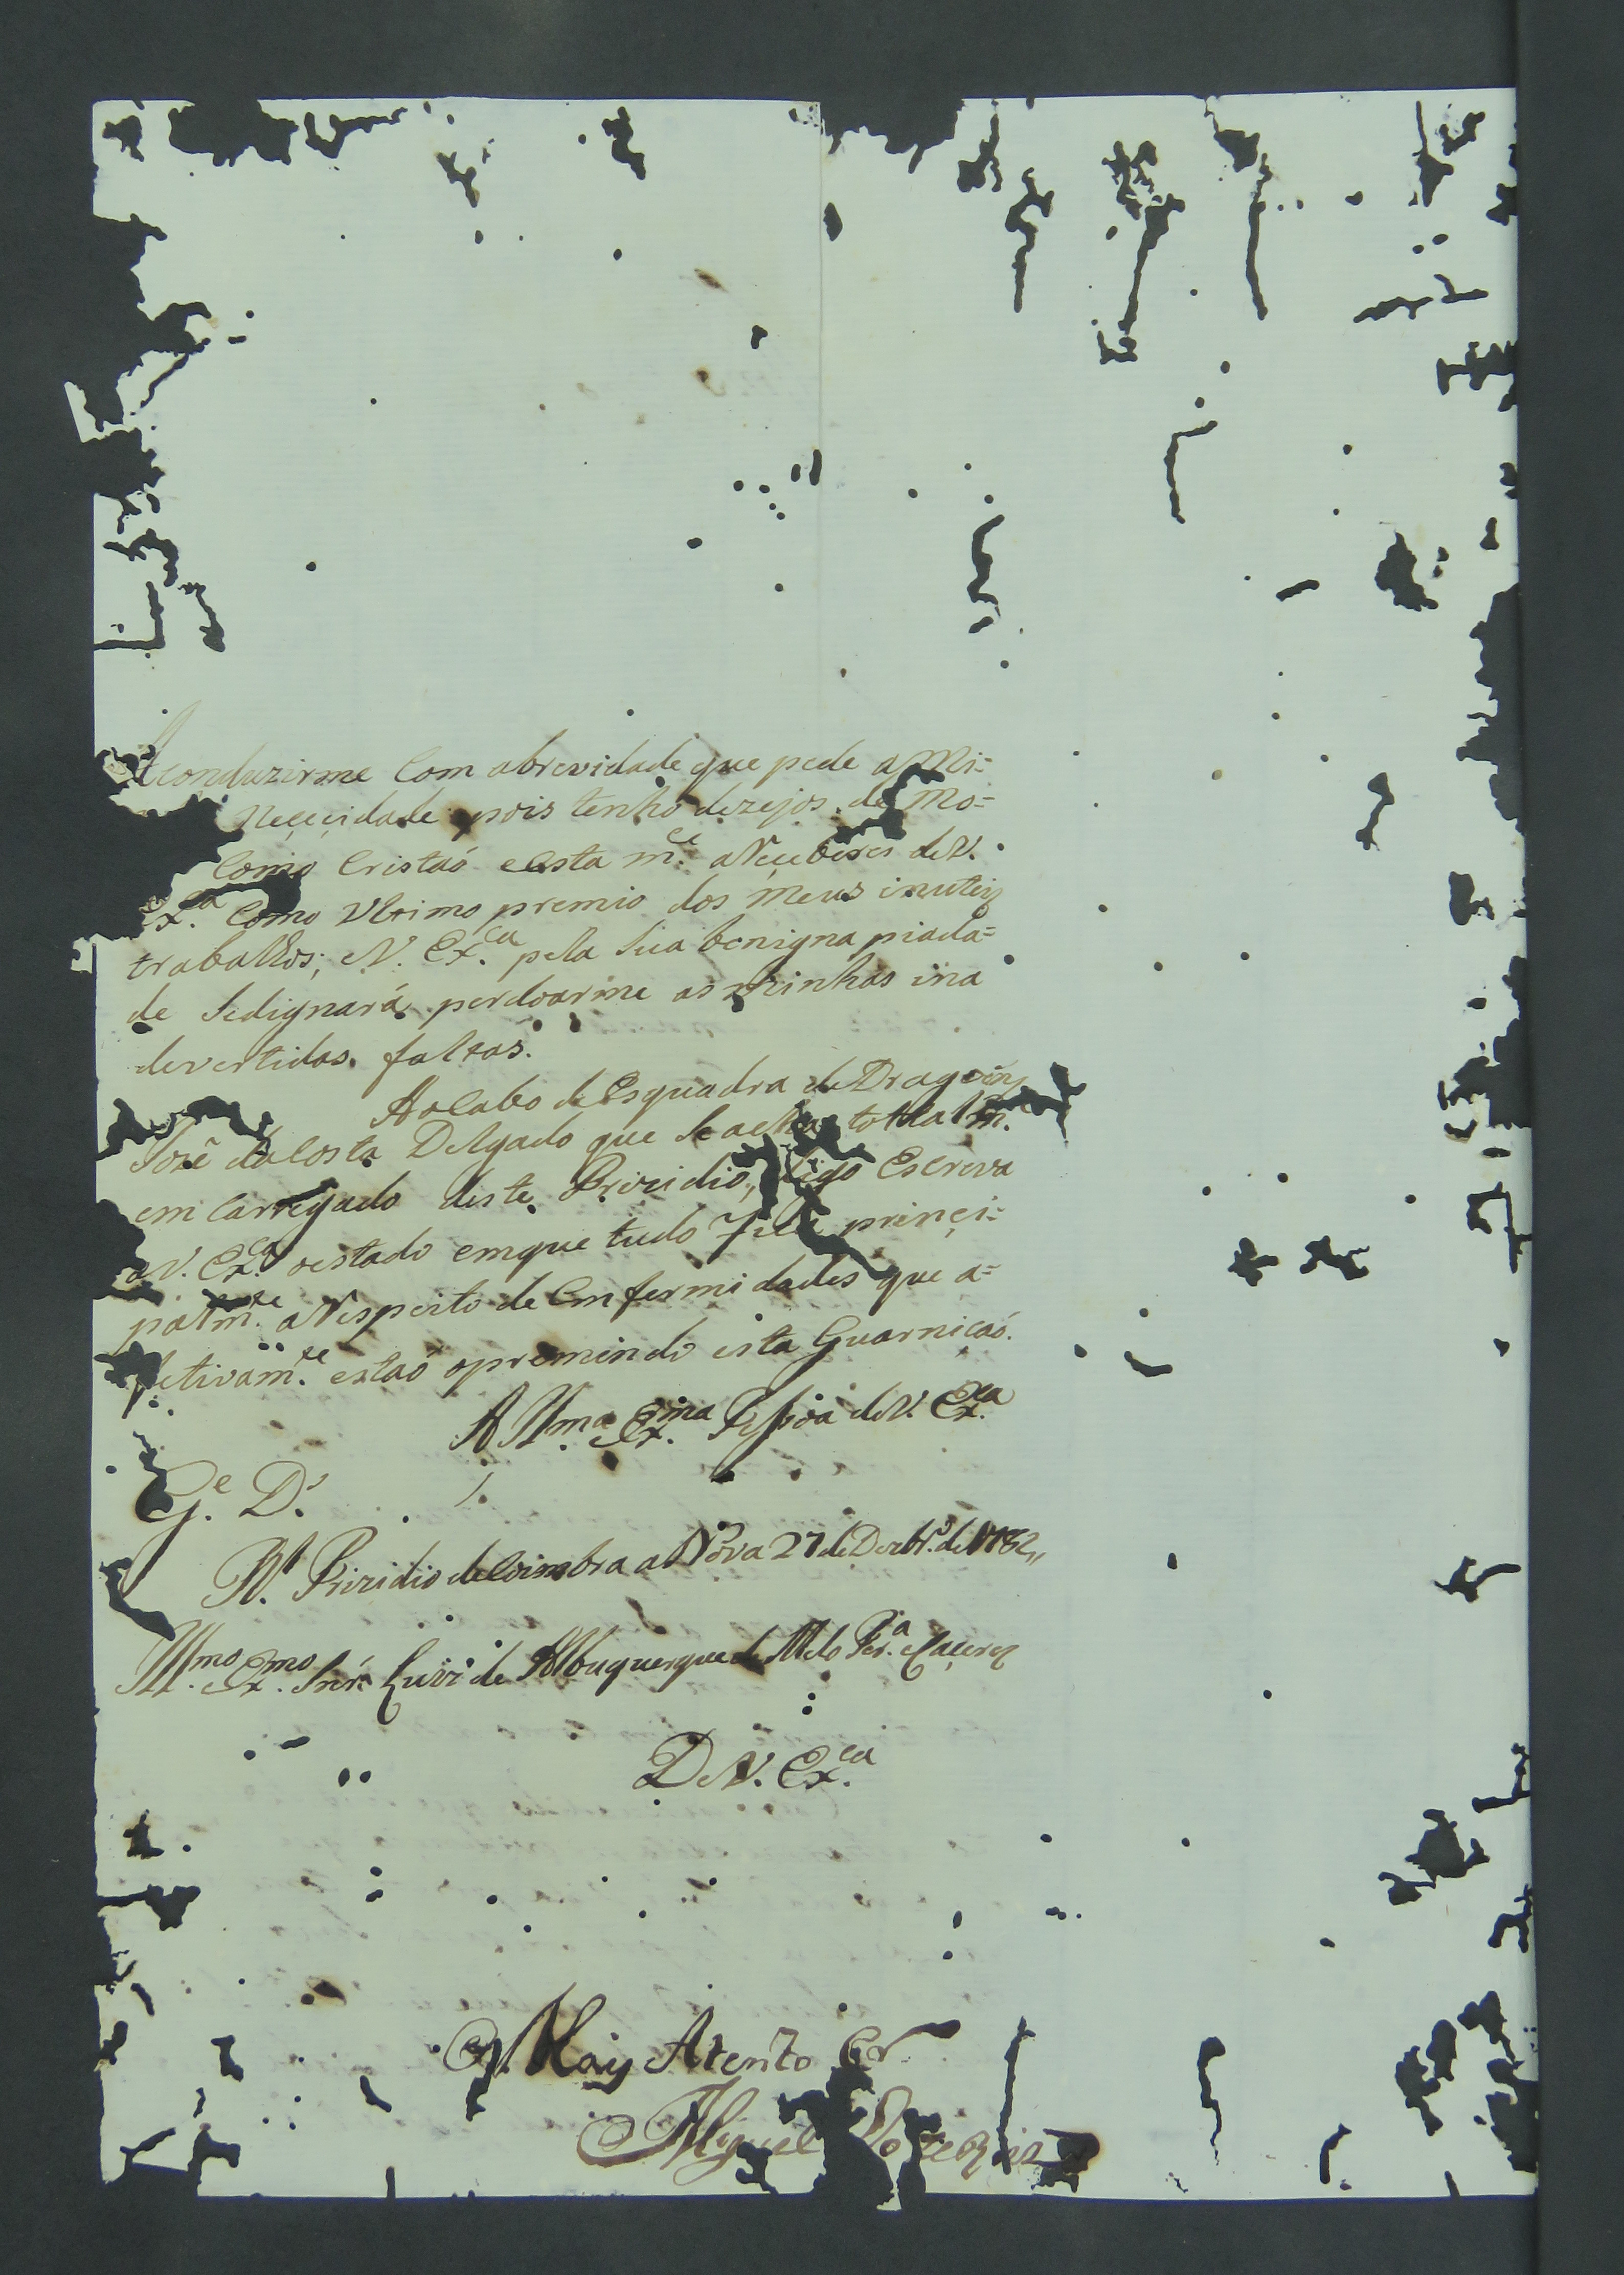 conduzirme Com abrevidade que pede a Mi=
Neçeçidade pois tenho dezejos de Mo=
Como Cristaó e Esta m.ce a Reçeberei de V.
Ex.ca Como Vltimo premio dos Meus inuteiz
trabalhos; e V. Ex.ca pela Sua benigna piada=
de Sedignará perdoarme as minhas ina
devertidas faltas.
Ao Cabo de Esquadra de Dragoiñz
Jozê da Costa Delgado que Se acha tottalm.
em Carregado deste Prizidio, digo Escreva
a V. Ex.ca oestado emque tudo Fica prinçi=
palm.te a Respeito de Emfermidades que a=
fetivam.te estaó opremindo esta Guarniçaó.
A Ill.ma Ex.ma Pessoa de V. Ex.ca
G.e D.s
R.l Prizidio de Coimbra a Nova 27 de Dezbr.o de 1782,,
Ill.mo Ex.mo Snr. Luiz de Albuquerque de Mello Per.a e Caçerez
De V. Ex.ca
Maiz Atento Cr
Miguel